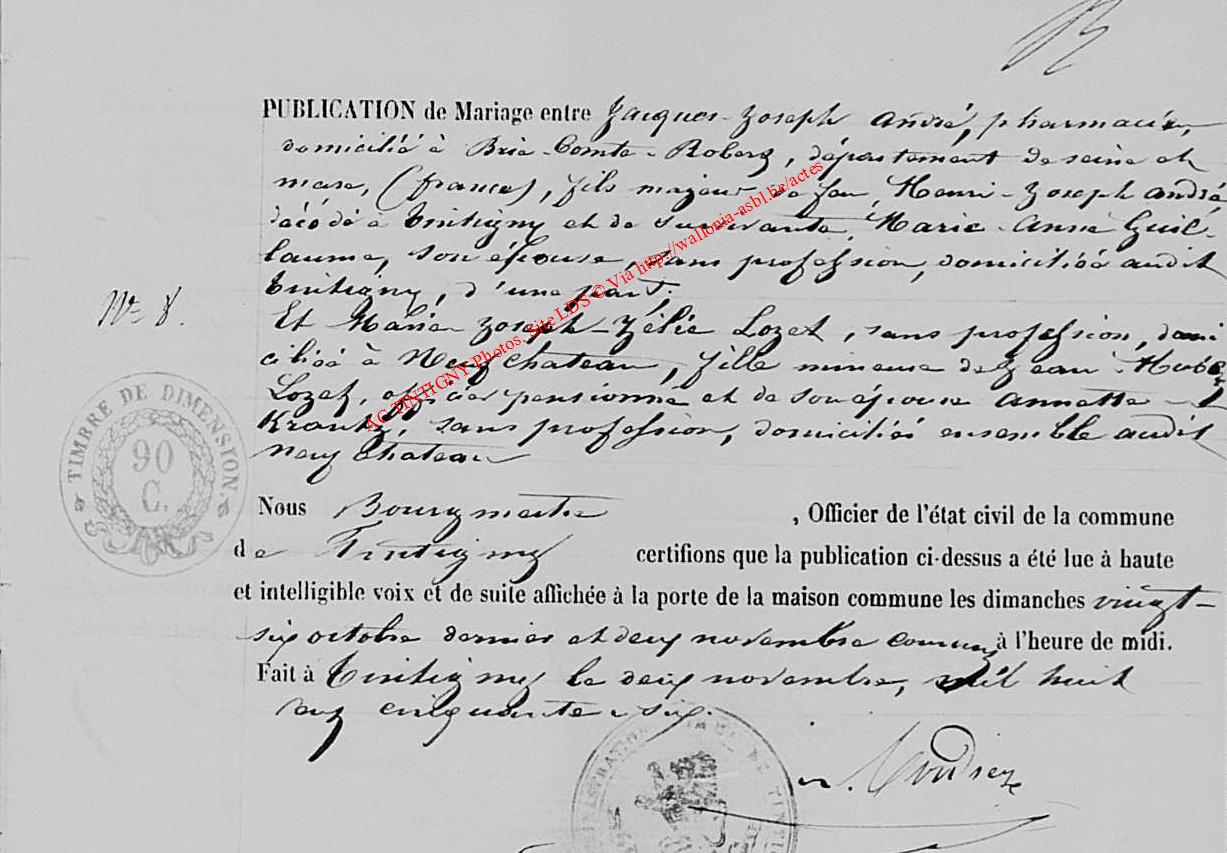 PUBLICATION de Mariage entre Jacques-Joseph André, pharmacien,
domicilié à Brie-Comte-Robert, département de Seine et
marne, (france), fils majeur de feu Henri-Joseph André,
décédé à Tintigny et de survivante Marie-Anne Guil-
laume, son épouse, sans profession, domiciliée audit
Tintigny, d'une part;
Et Marie-Joseph-Zélie Lozet, sans profession, domi
ciliée à Neufchateau, fille mineure de Jean-Hubert
Lozet, officier pensionné et de son épouse Annette
Krantz, sans profession, domiciliés ensemble audit
neufchateau
No 8.
TIMBRE DE DIMENSION.
90
C.
Nous Bourgmestre , Officier de l'état civil de la commune
de Tintigny certifions que la publication ci-dessus a été lue à haute
et intelligible voix et de suite affichée à la porte de la maison commune les dimanches vingt-
six octobre dernier et deux novembre courant à l'heure de midi.
Fait à Tintigny le deux novembre, mil huit
cent cinquante-six.
AC TINTIGNY Photos. Site LDS © Via http://wallonia-asbl.be/actes